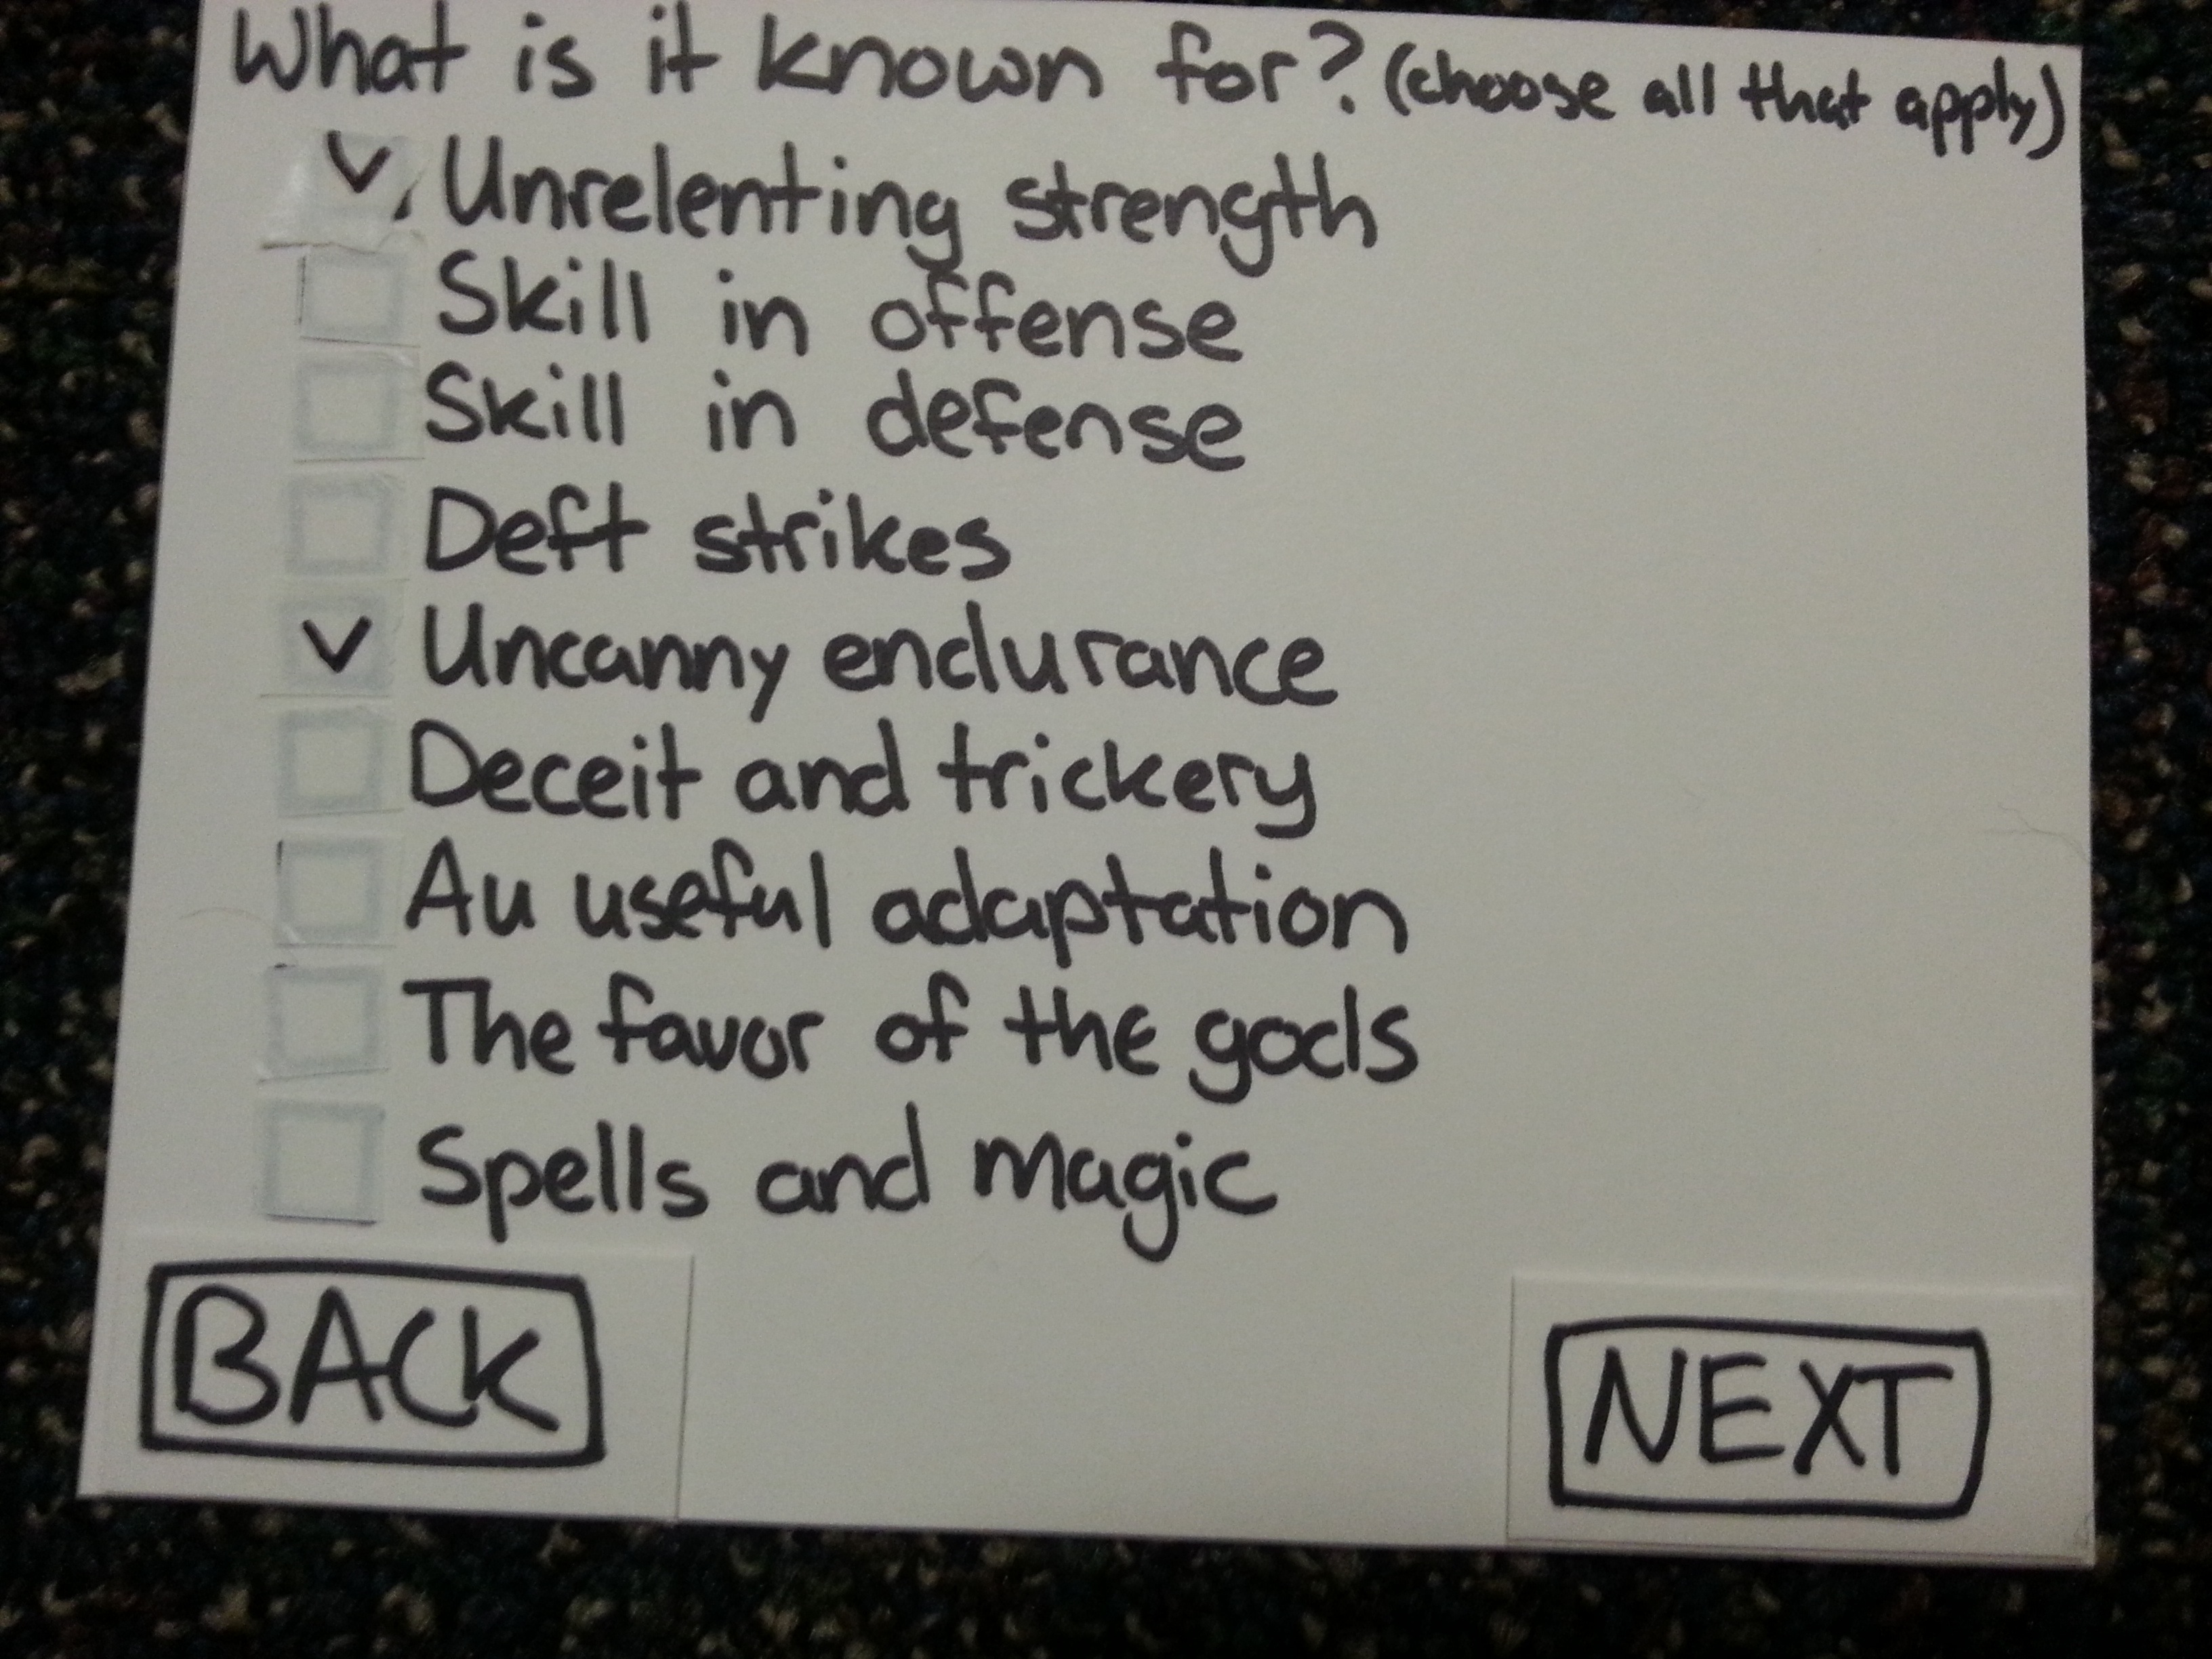 What is it known for? (choose all that apply)
✓ Unrelenting strength
Skill in offense
Skill in defense
Deft strikes
✓ Uncanny endurance
Deceit and trickery
Au useful adaptation
The favor of the gods
Spells and magic
BACK
NEXT